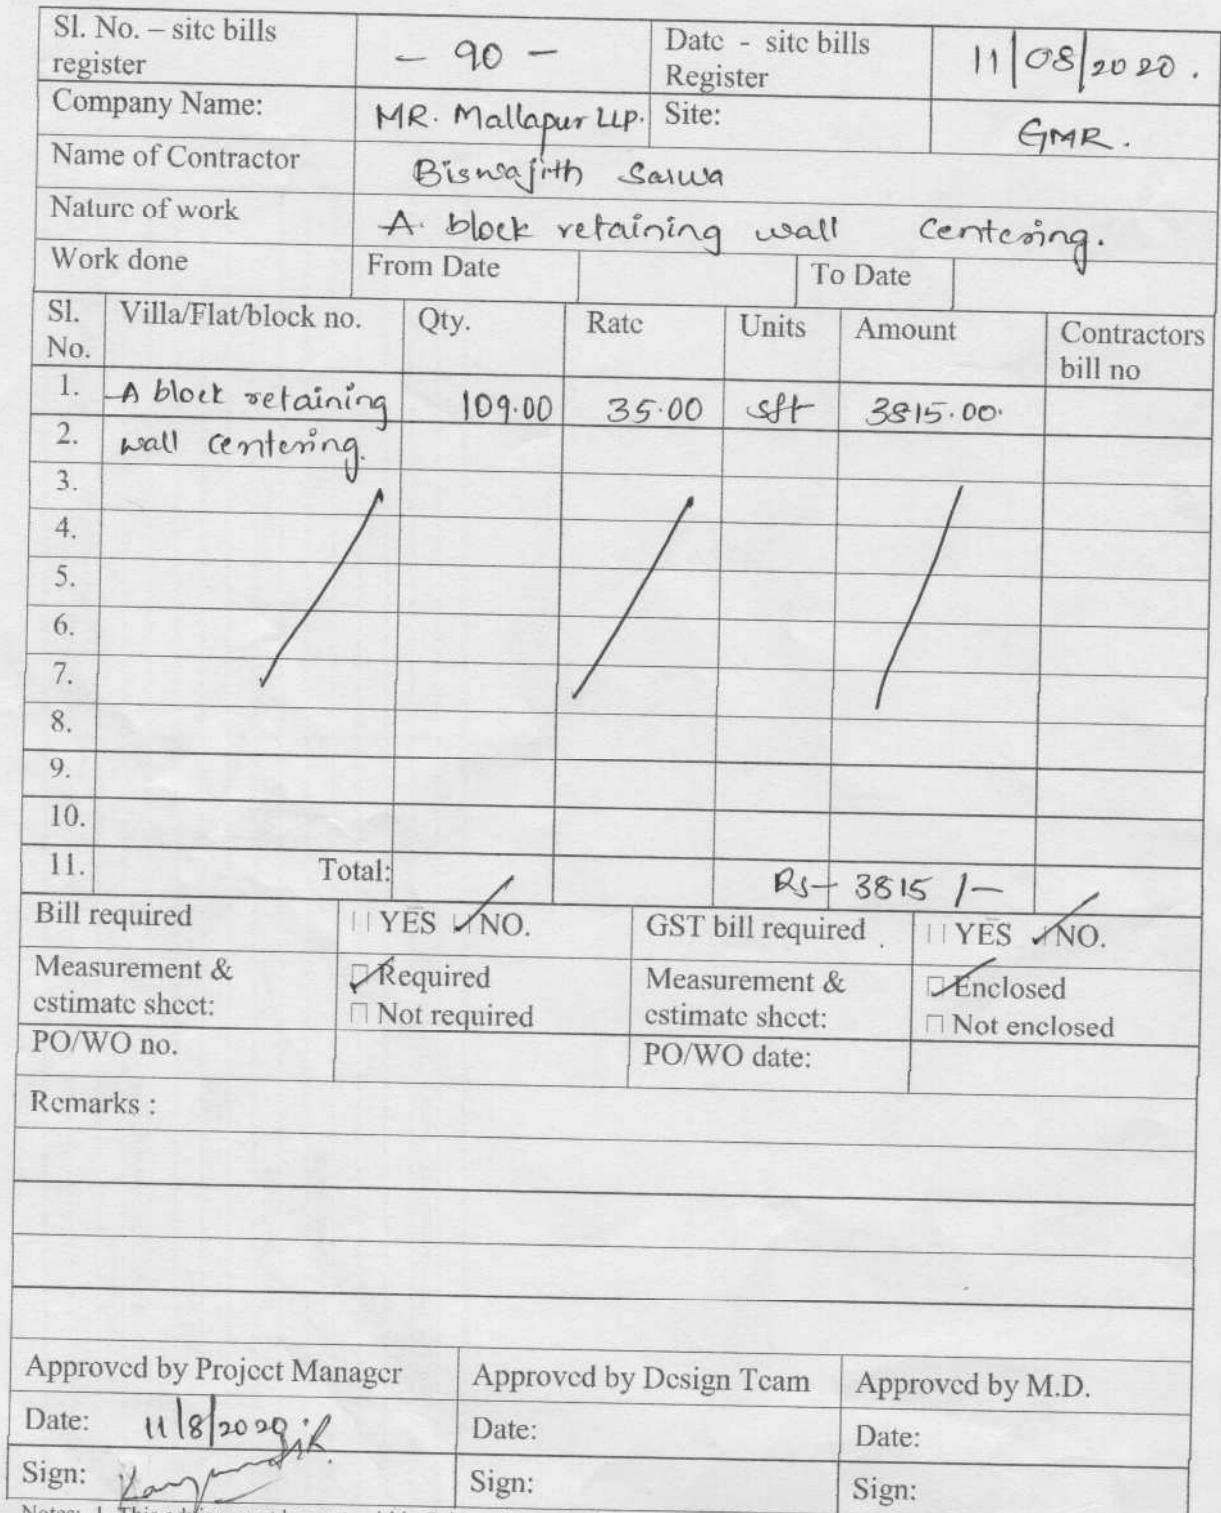 Sl. No. – site bills register – 90 – Date - site bills Register 11/08/2020.
Company Name: MR. Mallapur LLP. Site: GMR.
Name of Contractor Biswajith Sarwa
Nature of work A. block retaining wall centering.
Work done From Date To Date
Sl. No. Villa/Flat/block no. Qty. Rate Units Amount Contractors bill no
1. A block retaining 109.00 35.00 sft 3815.00.
2. wall centering.
3.
4.
5.
6.
7.
8.
9.
10.
11. Total: Rs- 3815 /-
Bill required YES NO. GST bill required YES NO.
Measurement & estimate sheet: Required Measurement & estimate sheet: Enclosed
Not required Not enclosed
PO/WO no. PO/WO date:
Remarks :
Approved by Project Manager Approved by Design Team Approved by M.D.
Date: 11/8/2020 Date: Date:
Sign: Sign: Sign: